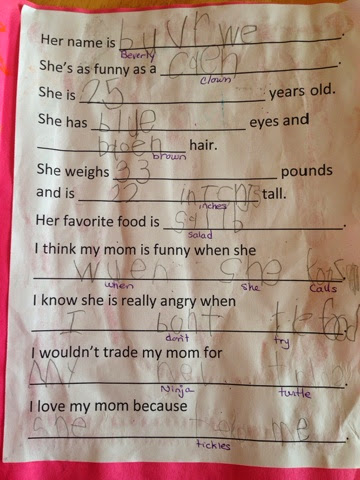 Her name is buvrwe.
Beverly
She's as funny as a
clown
She is 25 years old.
She has blue eyes and
hair.
brown
She weighs 33 pounds
and is 22 tall.
inches
Her favorite food is
salad
I think my mom is funny when she
when she calls
I know she is really angry when
I
don't try
I wouldn't trade my mom for
My
Ninja turtle
I love my mom because
She me
tickles